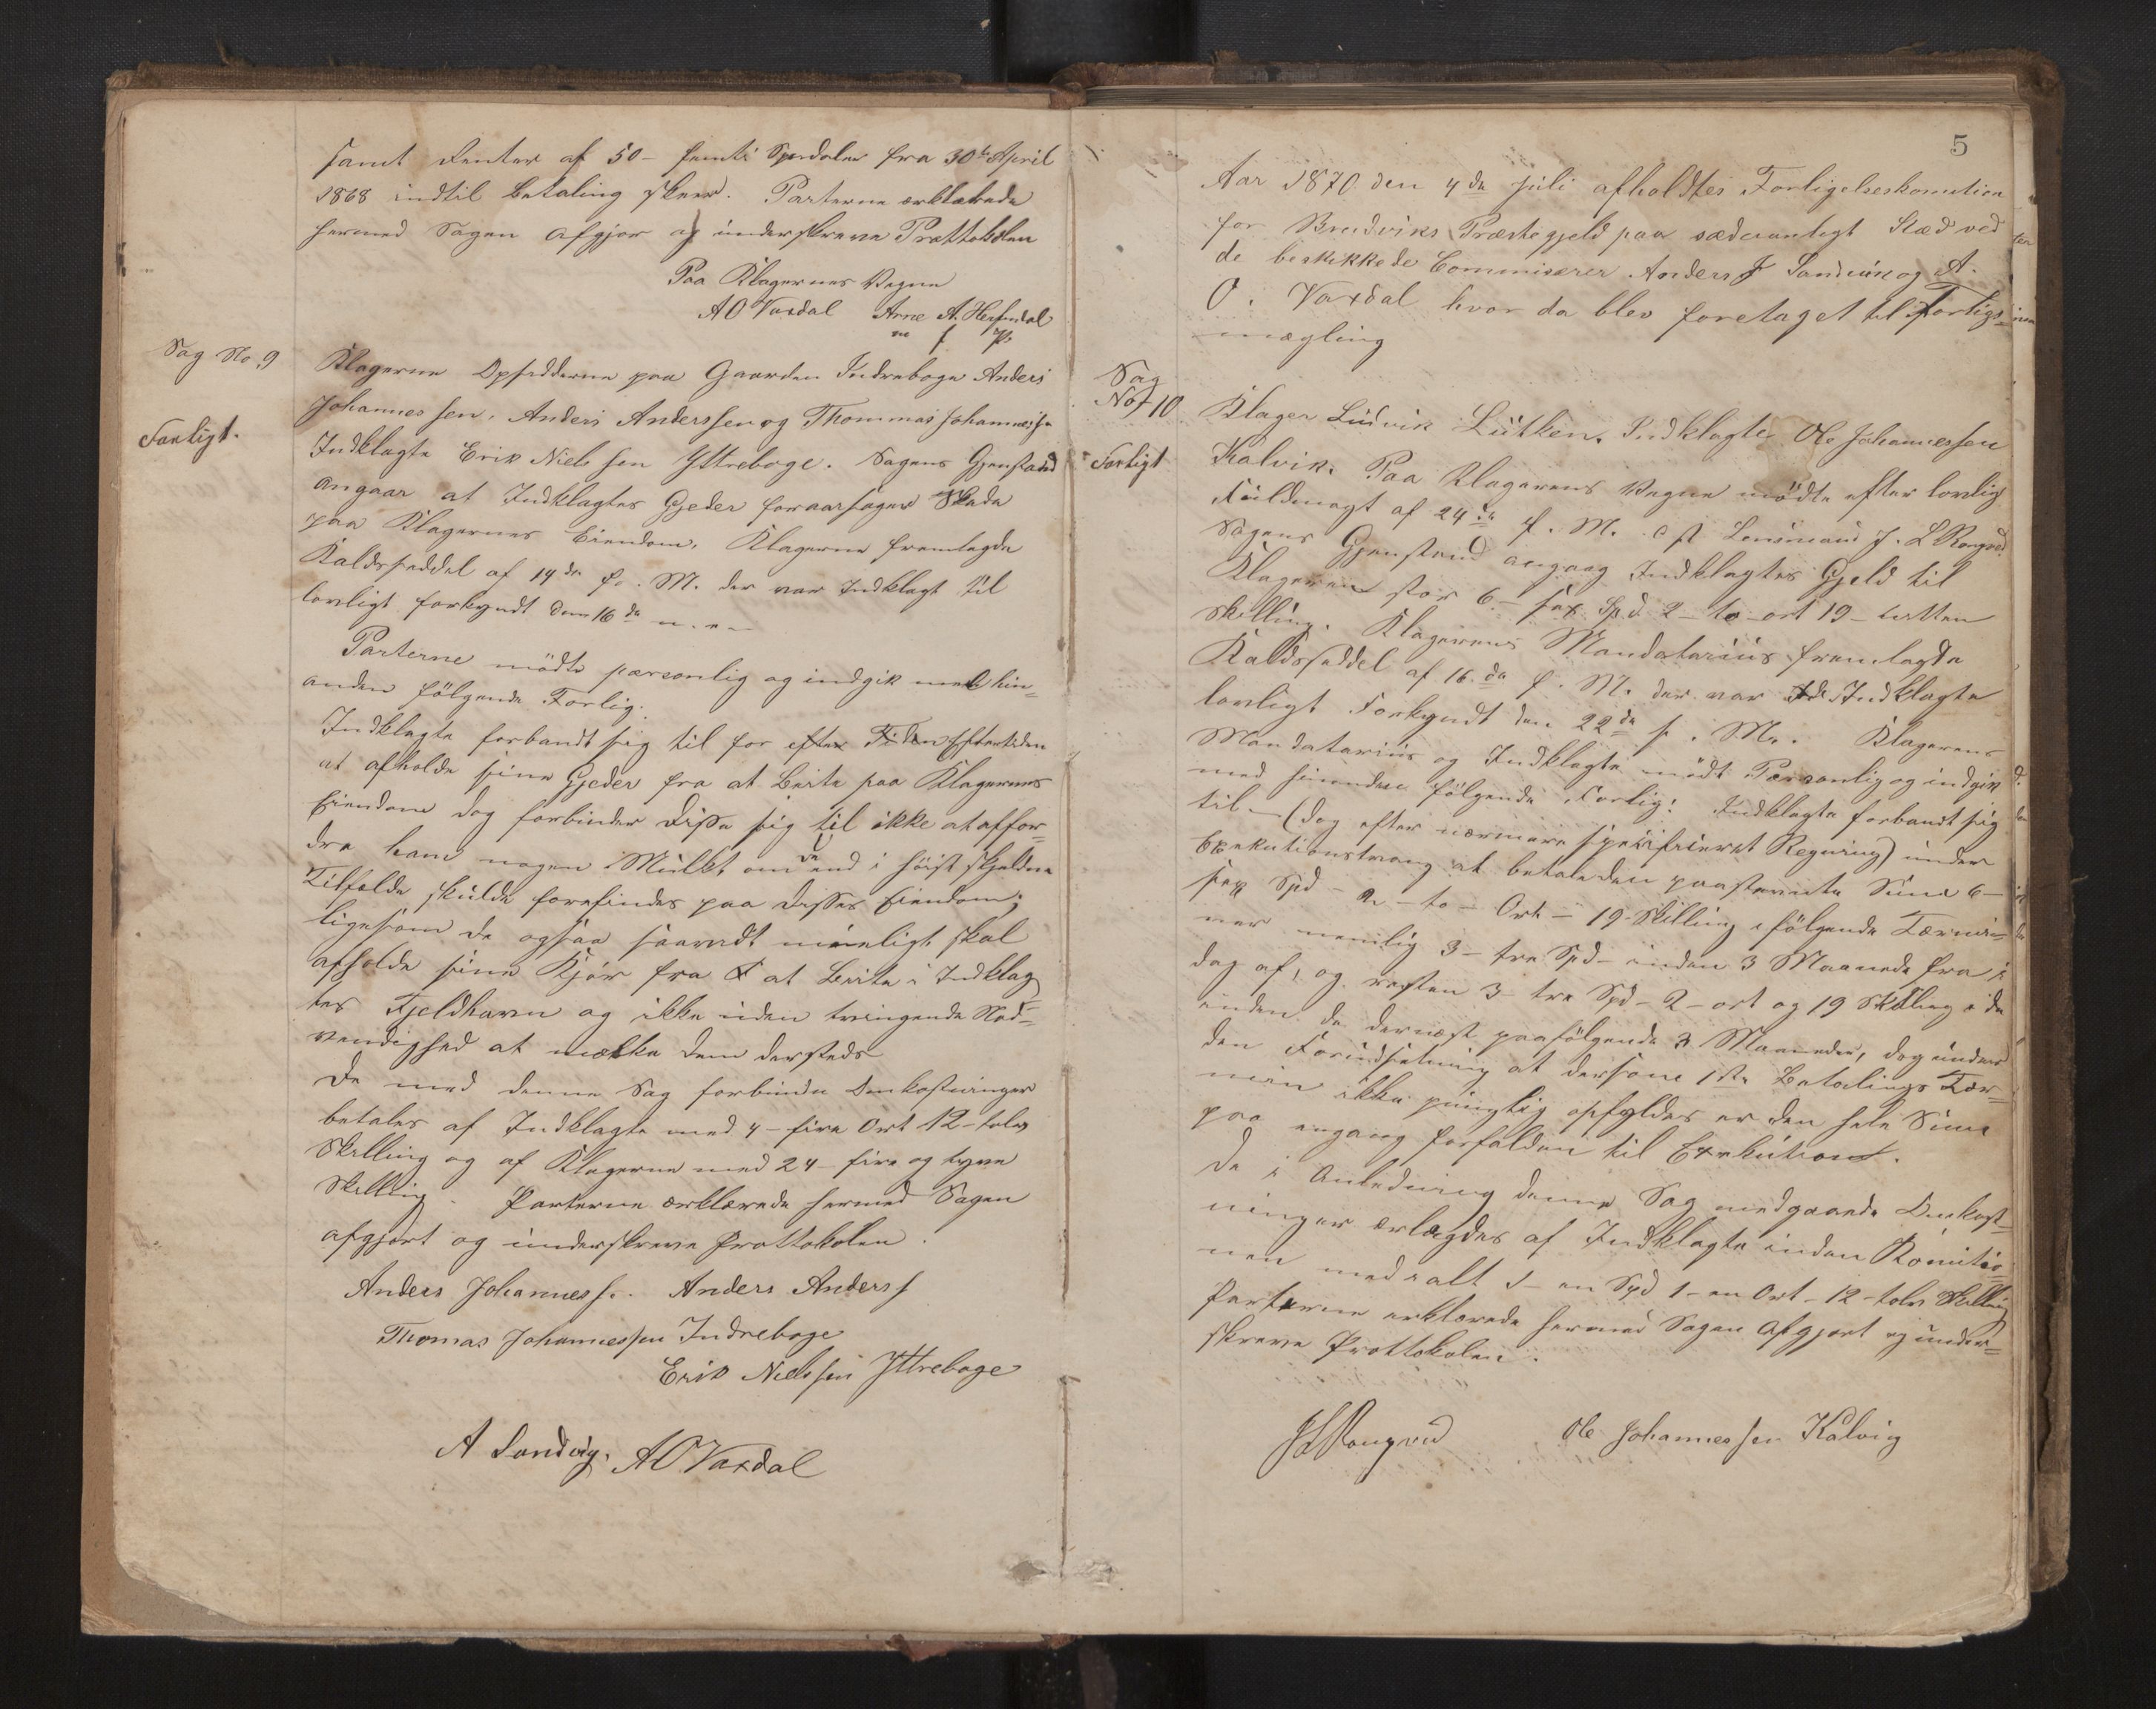 samt Renter af 50 - femti Spesdaler fra 30te April
1868 indtil Betaling skeer. Parterne ærklærede
hermed Sagen afgjor og underskreve Prottokolen
Paa Klagernes Vegne
A O Vaxdal Arne A. Hesjedal
m f P
Sag No 9
Klagerne Opsidderne paa Gaarden Indreboge Anders
Johannessen, Anders Anderssen og Thommas Johannessen
Forligt.
Indklagte Erik Nielssen Yttreboge. Sagens Gjenstand
angaar at Indklagtes Gjeder foraarsager Skade
paa Klagernes Eiendom. Klagerne fremlagde
Kaldsseddel af 14de f. M. der var Indklagt til
lovligt forkyndt den 16de
Parterne mödte personlig og indgik med hin=
anden fölgende Forlig:
Indklagte forbandt sig til for efter Tiden Eftertiden
at afholde sine Gjeder fra at Beite paa Klagernes
Eiendom dog forbinder Disse sig til ikke at affor=
dre ham nogen Mulkt om de end i höist skjeldne
Tilfælde skulde forefindes paa Disses Eiendom;
ligesom de ogsaa saavidt mueligt skal
afholde sine Kjör fra at Beite i Indklag
tes Fjeldhavn og ikke uden tvingende Nöd=
vendighed at mælke dem dersteds
De med denne Sag forbundne Omkostninger
betales af Indklagte med 4 - fire Ort 12 - tolv
Skilling og af Klagerne med 24 - fire og tyve
Skilling. Parterne ærklærede hermed Sagen
afgjort og underskreve Prottokolen.
Anders Johanness. Anders Anderss
Thomas Johannessen Indreboge
Erik Nielssen Yttreboge
A Sandvig. A O Vaxdal
5
Aar 1870 den 4de Juli afholdtes Forligelseskomition
for Brudviks Præstegjeld paa sædvanligt Stæd ved
de beskikkede Commiserer Anders J Sandvik og A.
O. Vaxdal hvor da blev foretaget til Forligs=
mægling
Sag
No 10
Klager Ludvik Lütken. Indklagte Ole Johannessen
Forligt
Kalvik. Paa Klagerens Vegne mödte efter lovlig
Fuldmagt af 24de f. M. Lensmand J. L Rongved
Sagens Gjenstand angaag Indklagtes Gjeld til
Klageren stor 6 - sex Spd 2 - to - ort 19 - nitten
Skilling. Klagerens Mandatarius fremlagde
Kaldsseddel af 16de f. M. der var Indklagte
lovligt Forkyndt den 22de f. M. Klagerens
Mandatarius og Indklagte mödt Personlig og indgik
med hinanden fölgende Forlig: Indklagte forbandt sig
til - (dog efter nærmere spesifiseret Regning) under
Exekutionstvang at betale den paastævnte Sum 6 -
sex Spd - 2 - to - Ort - 19 Skilling i fölgende Tærmi=
ner nemlig 3 - tre Spd - inden 3 Maaneder fra i
dag af, og resten 3 - tre Spd - 2 - ort og 19 Skilling
inden de dernæst paafölgende 3 Maaneder, dog under
den Forudsetning at dersom 1ste Betalings Tær=
min ikke pungtlig opfyldes er den hele Sum
paa engang forfalden til Exekution.
De i Anledning denne Sag medgaaende Omkost=
ninger ærlægdes af Indklagte inden Komitio=
nen med i alt 1 - en Spd 1 - en Ort - 12 - tolv Skilling
Parterne ærklærede hermed Sagen Afgjort og under=
skreve Prottokolen.
J L Rongved Ole Johannessen Kalvig